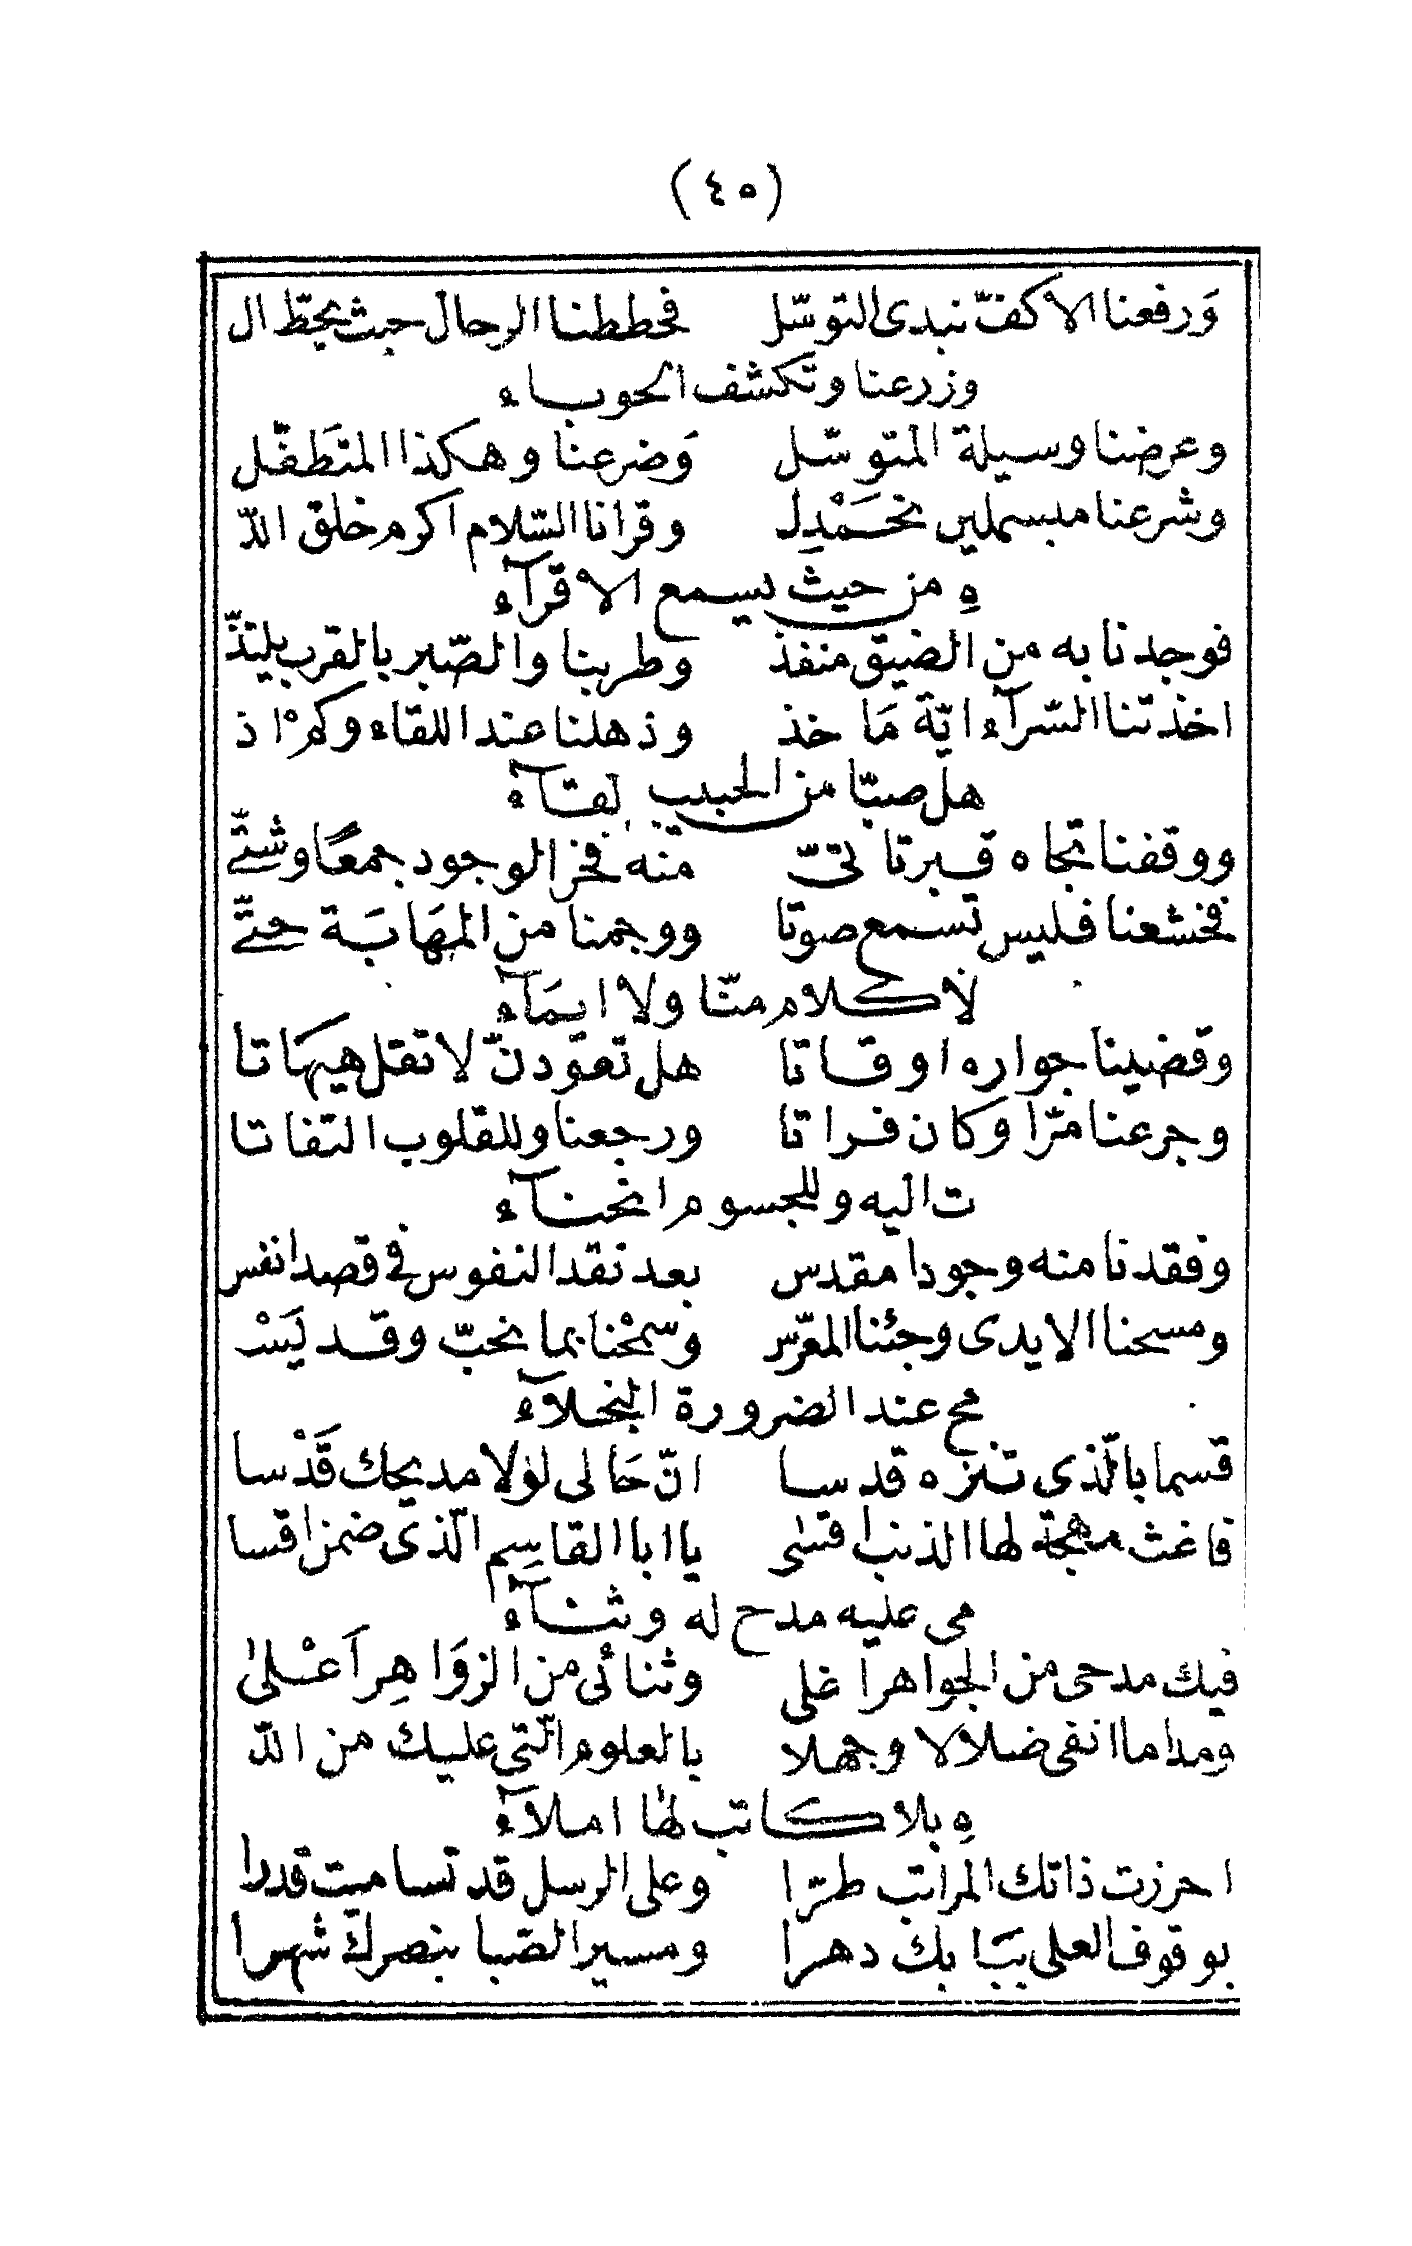 (٤٥)
وَرفعنا الاكفّ نبدى التوسّل فحططنا الرحال حيث يحطّ ال
وزر عنا وتكشف الحوباء
وعرضنا وسيلة المتوسّل وَضرعنا وهكذا المتَطَفّل
وشرعنا مبسملين نحَمْدِل وقرانا السّلام اكرم خلق اللّ
هِ من حيث يسمع الاقرآء
فوجدنا به من الضيق منفذ وطربنا والصّبر بالقرب يلتذّ
اخذتنا السّرآء ايّة مَا خذ وذهلنا عند اللقاء وكم اذ
هل صبّا من الحبيب لقآء
ووقفنا تجاه قبر تاتّى منّه فخر الوجود جمعًا وشتّى
فخشعنا فليس تسمع صوتا ووجمنا من المهَابَة حتّى
لاكلام منّا ولا ايمَآء
وقضينا جواره اوقاتا هل تعودنّ لا تقل هيهَاتا
وجرعنا مرّا وكان فراتا ورجعنا وللقلوب التفاتا
ت اليه وللجسوم انحنآء
وفقدنا منه وجودا مقدس بعد نقد النفوس فى قصد انفس
ومسحنا الايدى وجئنا المعرّس وسمحْنا بما نحبّ وقد يَسْ
مح عند الضرورة البخلآء
قسما بالّذى تنزه قدسا انّ حَالى لوْلا مديحك قَدْسا
فاغث مهجة لها الذنب اقسٰى يا ابا القاسِم الّذى ضمن اقسا
مى عليه مدح له وثنآء
فيك مدحى من الجواهر اغلى وثنائى من الزوَاهِر اَعْلىٰ
ومداما انفى ضلالا وجهلا بالعلوم الّتى عليك من اللّ
هِ بلا كاتب لها املآء
احرزت ذاتك المراتب طرّا وعلى الرسل قد تسامت قدرا
بوقوف العلى ببَابك دهرا ومسير الصّبا بنصرك شهرا